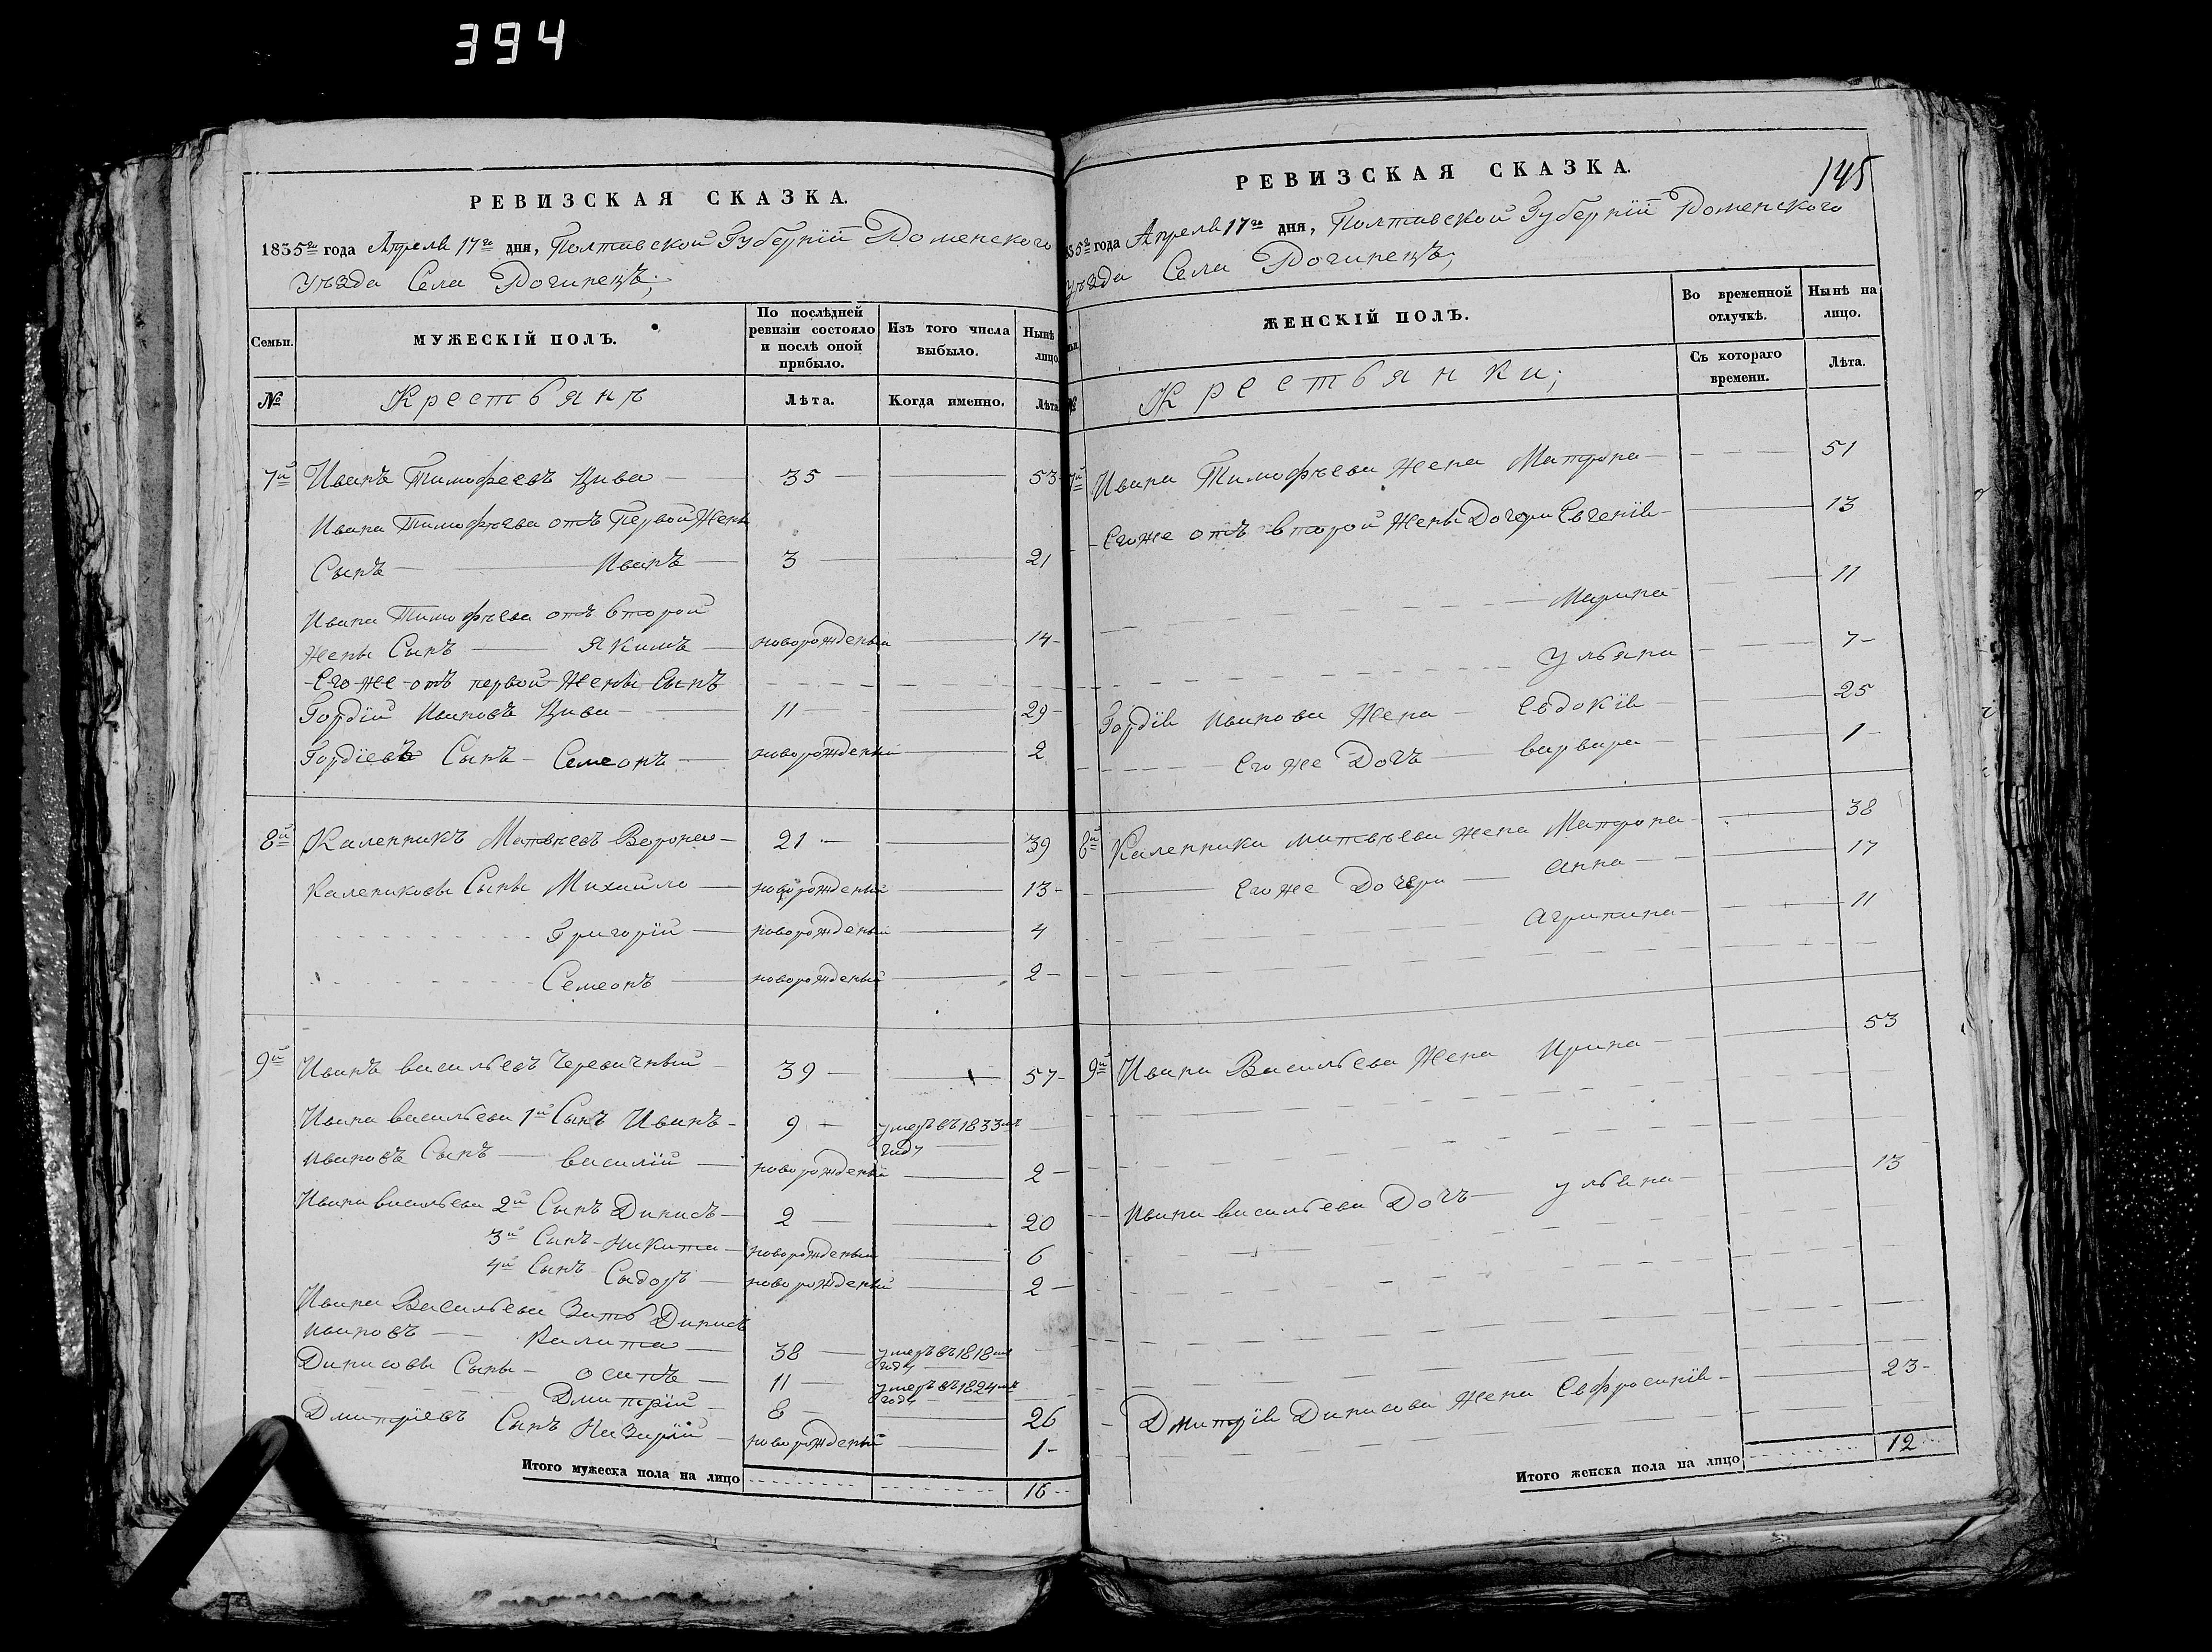 394
РЕВИЗСКАЯ СКАЗКА.
1835го года Апреля 17го дня, Полтавской Губернїй Роменского
уѣзда Села Рогинецъ;
Семьи.
МУЖЕСКІЙ ПОЛЪ.
По послѣдней ревизіи состояло и послѣ оной прибыло.
Изъ того числа выбыло.
Нынѣ лицо
№
Крестьянъ
Лѣта.
Когда именно.
Лѣта
7й Иванъ Тимофеевъ Цыва 35 53
Ивана Тимофѣева отъ Первой Жены
Сынъ Иванъ 3 21
Ивана Тимофѣева отъ второй
Жены Сынъ Якимъ новорожденый 14
Его же отъ первой Жены Сынъ
Гордій Ивановъ Цыва 11 29
Гордіевъ Сынъ Семеонъ новорожденый 2
8й Каленникъ Матвѣевъ Ворона 21 39
Калениковы Сыны Михайло новорожденый 13
Григорій новорожденый 4
Семеонъ новорожденый 2
9й Иванъ васильевъ Черевичный 39 57
Ивана васильева 1й Сынъ Иванъ 9 умеръ въ 1833мъ году
Ивановъ Сынъ василій новорожденый 2
Ивана васильева 2й Сынъ Динисъ 2 20
3й Сынъ Никита новорожденый 6
4й Сынъ Сыдоръ новорожденый 2
Ивана Васильева Зять Динисъ
Ивановъ Калита 38 умеръ въ 1818мъ году
Динисовы Сыны осипъ 11 умеръ въ 1824мъ году
Дмитрій 8 26
Дмитріевъ Сынъ Назарій новорожденый 1
Итого мужеска пола на лицо 16
145
РЕВИЗСКАЯ СКАЗКА.
35го года Апреля 17го дня, Полтавской Губернїй Роменского
уѣзда Села Рогинецъ;
ЖЕНСКІЙ ПОЛЪ.
Во временной отлучкѣ.
Нынѣ на лицо.
№
Крестьянки;
Съ котораго времени.
Лѣта.
7й Ивана Тимофѣева жена Матрона 51
Егоже отъ второй Жены Дочери Евгенія 13
Марина 11
Ульяна 7
Гордія Иванова Жена Евдокія 25
Его же Дочъ варвара 1
8й Каленника матвѣева жена Матрона 38
Его же Дочери анна 17
агрипина 11
9й Ивана Васильева Жена Ирина 53
Ивана васильева Дочъ ульяна 13
Дмитрія Динисова жена Евфросинія 23
Итого женска пола на лицо 12